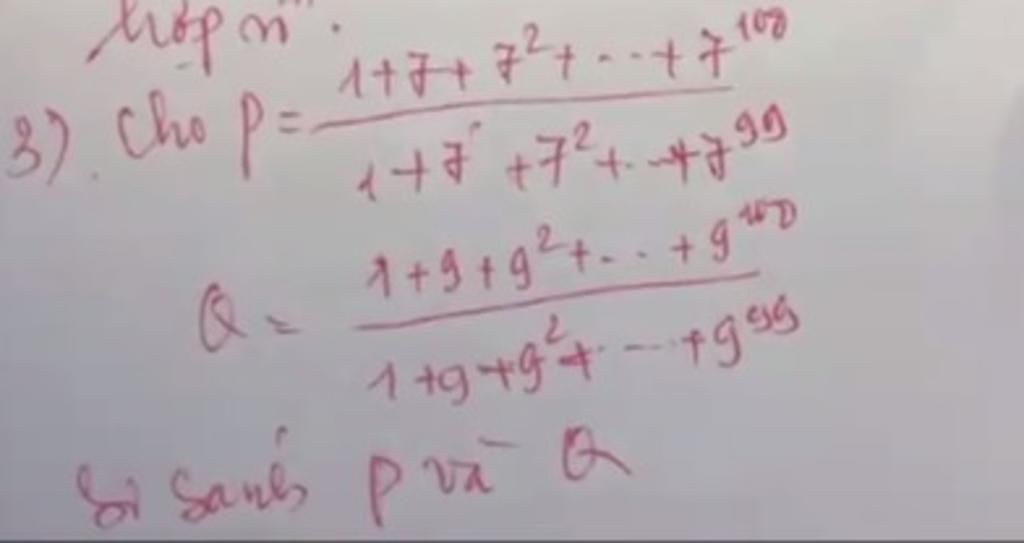 hợp n
3). Cho P = \frac{1+7+7^2+...+7^{100}}{1+7+7^2+...+7^{99}}
Q = \frac{1+9+9^2+...+9^{100}}{1+9+9^2+...+9^{99}}
So sánh P và Q